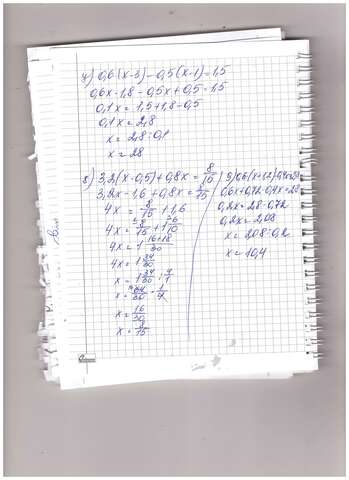 4) 0,6(x-3)-0,5(x-1)=1,5
0,6x-1,8-0,5x+0,5=1,5
0,1x=1,5+1,8-0,5
0,1x=2,8
x=2,8:0,1
x=28
8) 3,2(x-0,5)+0,8x=8/15
3,2x-1,6+0,8x=8/15
4x=8/15+1,6
4x=8/15+1 6/10
4x=1 16+18/30
4x=1 34/30
x=1 34/30:4/1
x=64/30·1/4
x=16/30
x=8/15
0,6x+0,72-0,4x=2,8
0,2x=2,8-0,72
0,2x=2,08
x=2,08:0,2
x=10,4